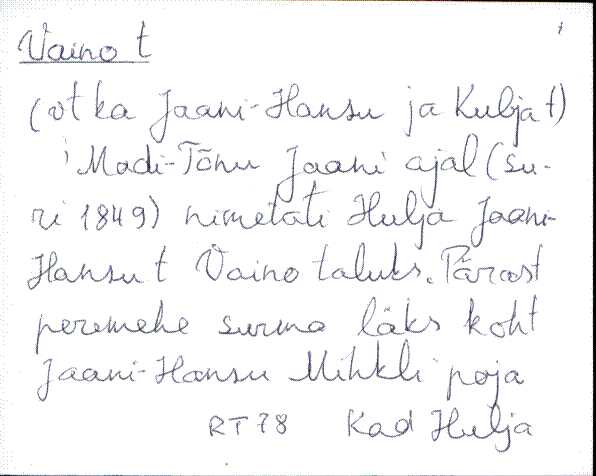 Vaino t
(vt ka Jaani-Hansu ja Kulja t)
Madi-Tõnu Jaani ajal (su-
ri 1849) nimetati Hulja Jaani-
Hansu t Vaino taluks. Pärast
peremehe surma läks koht
Jaani-Hansu Mihkli poja
RT 78 Kad Hulja